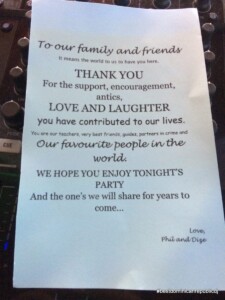 To our family and friends
It means the world to us to have you here.
THANK YOU
For the support, encouragement,
antics,
LOVE AND LAUGHTER
you have contributed to our lives.
You are our teachers, very best friends, guides, partners in crime and
Our favourite people in the
world.
WE HOPE YOU ENJOY TONIGHT'S
PARTY
And the one's we will share for years to
come...
Love,
Phil and Dize